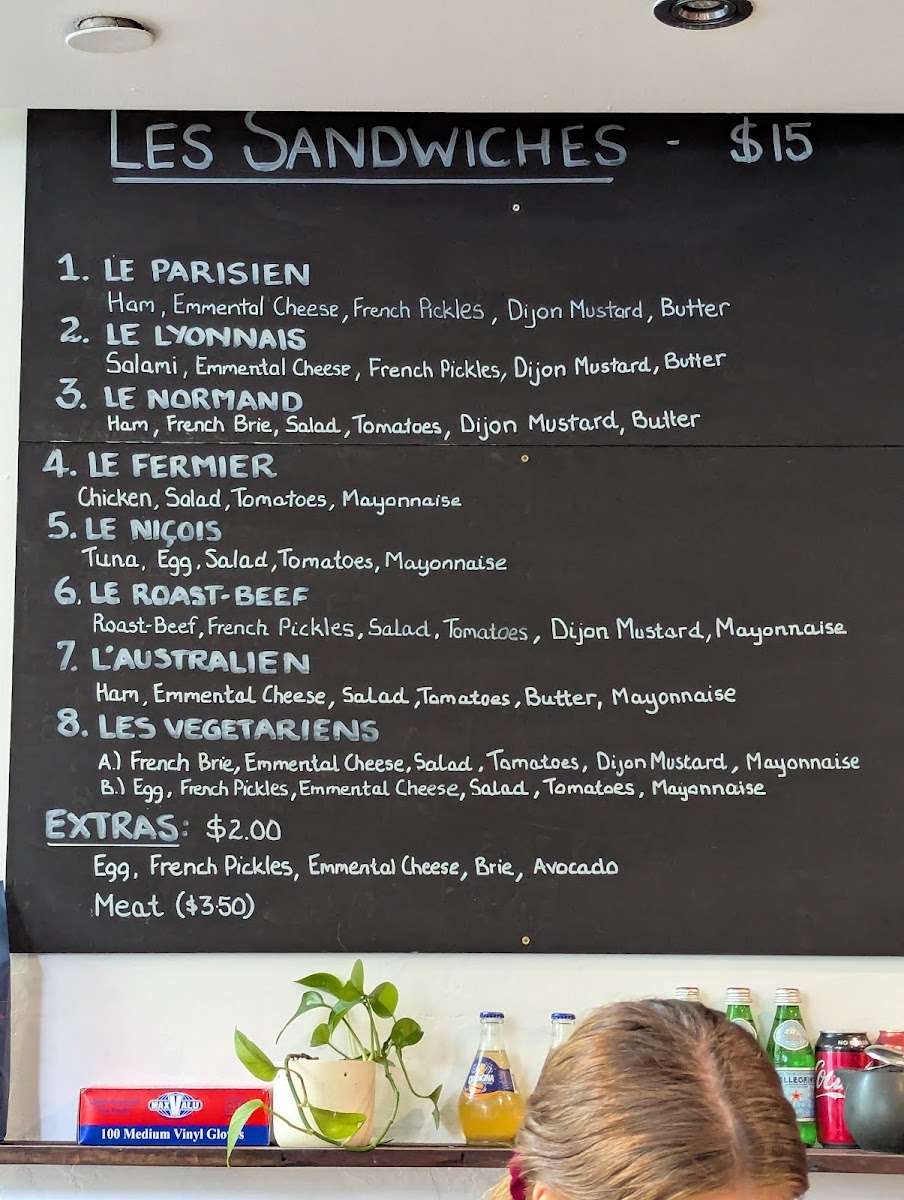 LES SANDWICHES - $15
1. LE PARISIEN
Ham, Emmental Cheese, French Pickles, Dijon Mustard, Butter
2. LE LYONNAIS
Salami, Emmental Cheese, French Pickles, Dijon Mustard, Butter
3. LE NORMAND
Ham, French Brie, Salad, Tomatoes, Dijon Mustard, Butter
4. LE FERMIER
Chicken, Salad, Tomatoes, Mayonnaise
5. LE NIÇOIS
Tuna, Egg, Salad, Tomatoes, Mayonnaise
6. LE ROAST-BEEF
Roast-Beef, French Pickles, Salad, Tomatoes, Dijon Mustard, Mayonnaise
7. L'AUSTRALIEN
Ham, Emmental Cheese, Salad, Tomatoes, Butter, Mayonnaise
8. LES VEGETARIENS
A.) French Brie, Emmental Cheese, Salad, Tomatoes, Dijon Mustard, Mayonnaise
B.) Egg, French Pickles, Emmental Cheese, Salad, Tomatoes, Mayonnaise
EXTRAS: $2.00
Egg, French Pickles, Emmental Cheese, Brie, Avocado
Meat ($3.50)
MAX VALU
100 Medium Vinyl Gloves